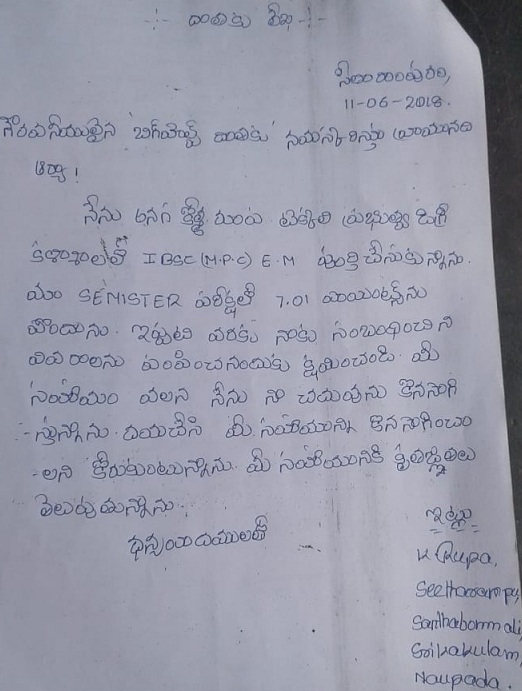 -:- దాతకు లేఖ -:-
సీతారాంపురం,
11-06-2018.
గౌరవనీయులైన 'బిగ్‌హెల్ప్ దాతకు' నమస్కరిస్తూ వ్రాయునది
ఆర్యా!
నేను అనగా రూప టెక్కలి ప్రభుత్వ డిగ్రీ
కళాశాలలో I BSC (M.P.C) E.M పూర్తి చేసుకున్నాను.
మా SEMISTER పరీక్షలో 7.01 పాయింట్స్‌ను
పొందాను. ఇప్పటి వరకు నాకు సంబంధించిన
వివరాలను పంపించనందుకు క్షమించండి. మీ
సహాయం వలన నేను నా చదువును కొనసాగి
-స్తున్నాను. దయచేసి మీ సహాయాన్ని కొనసాగించా
-లని కోరుకుంటున్నాను. మీ సహాయానికి కృతజ్ఞతలు
తెలుపుతున్నాను.
ధన్యవాదములతో
ఇట్లు
K Rupa,
Seetharampu,
Santhabommali,
Srikakulam,
Naupada.